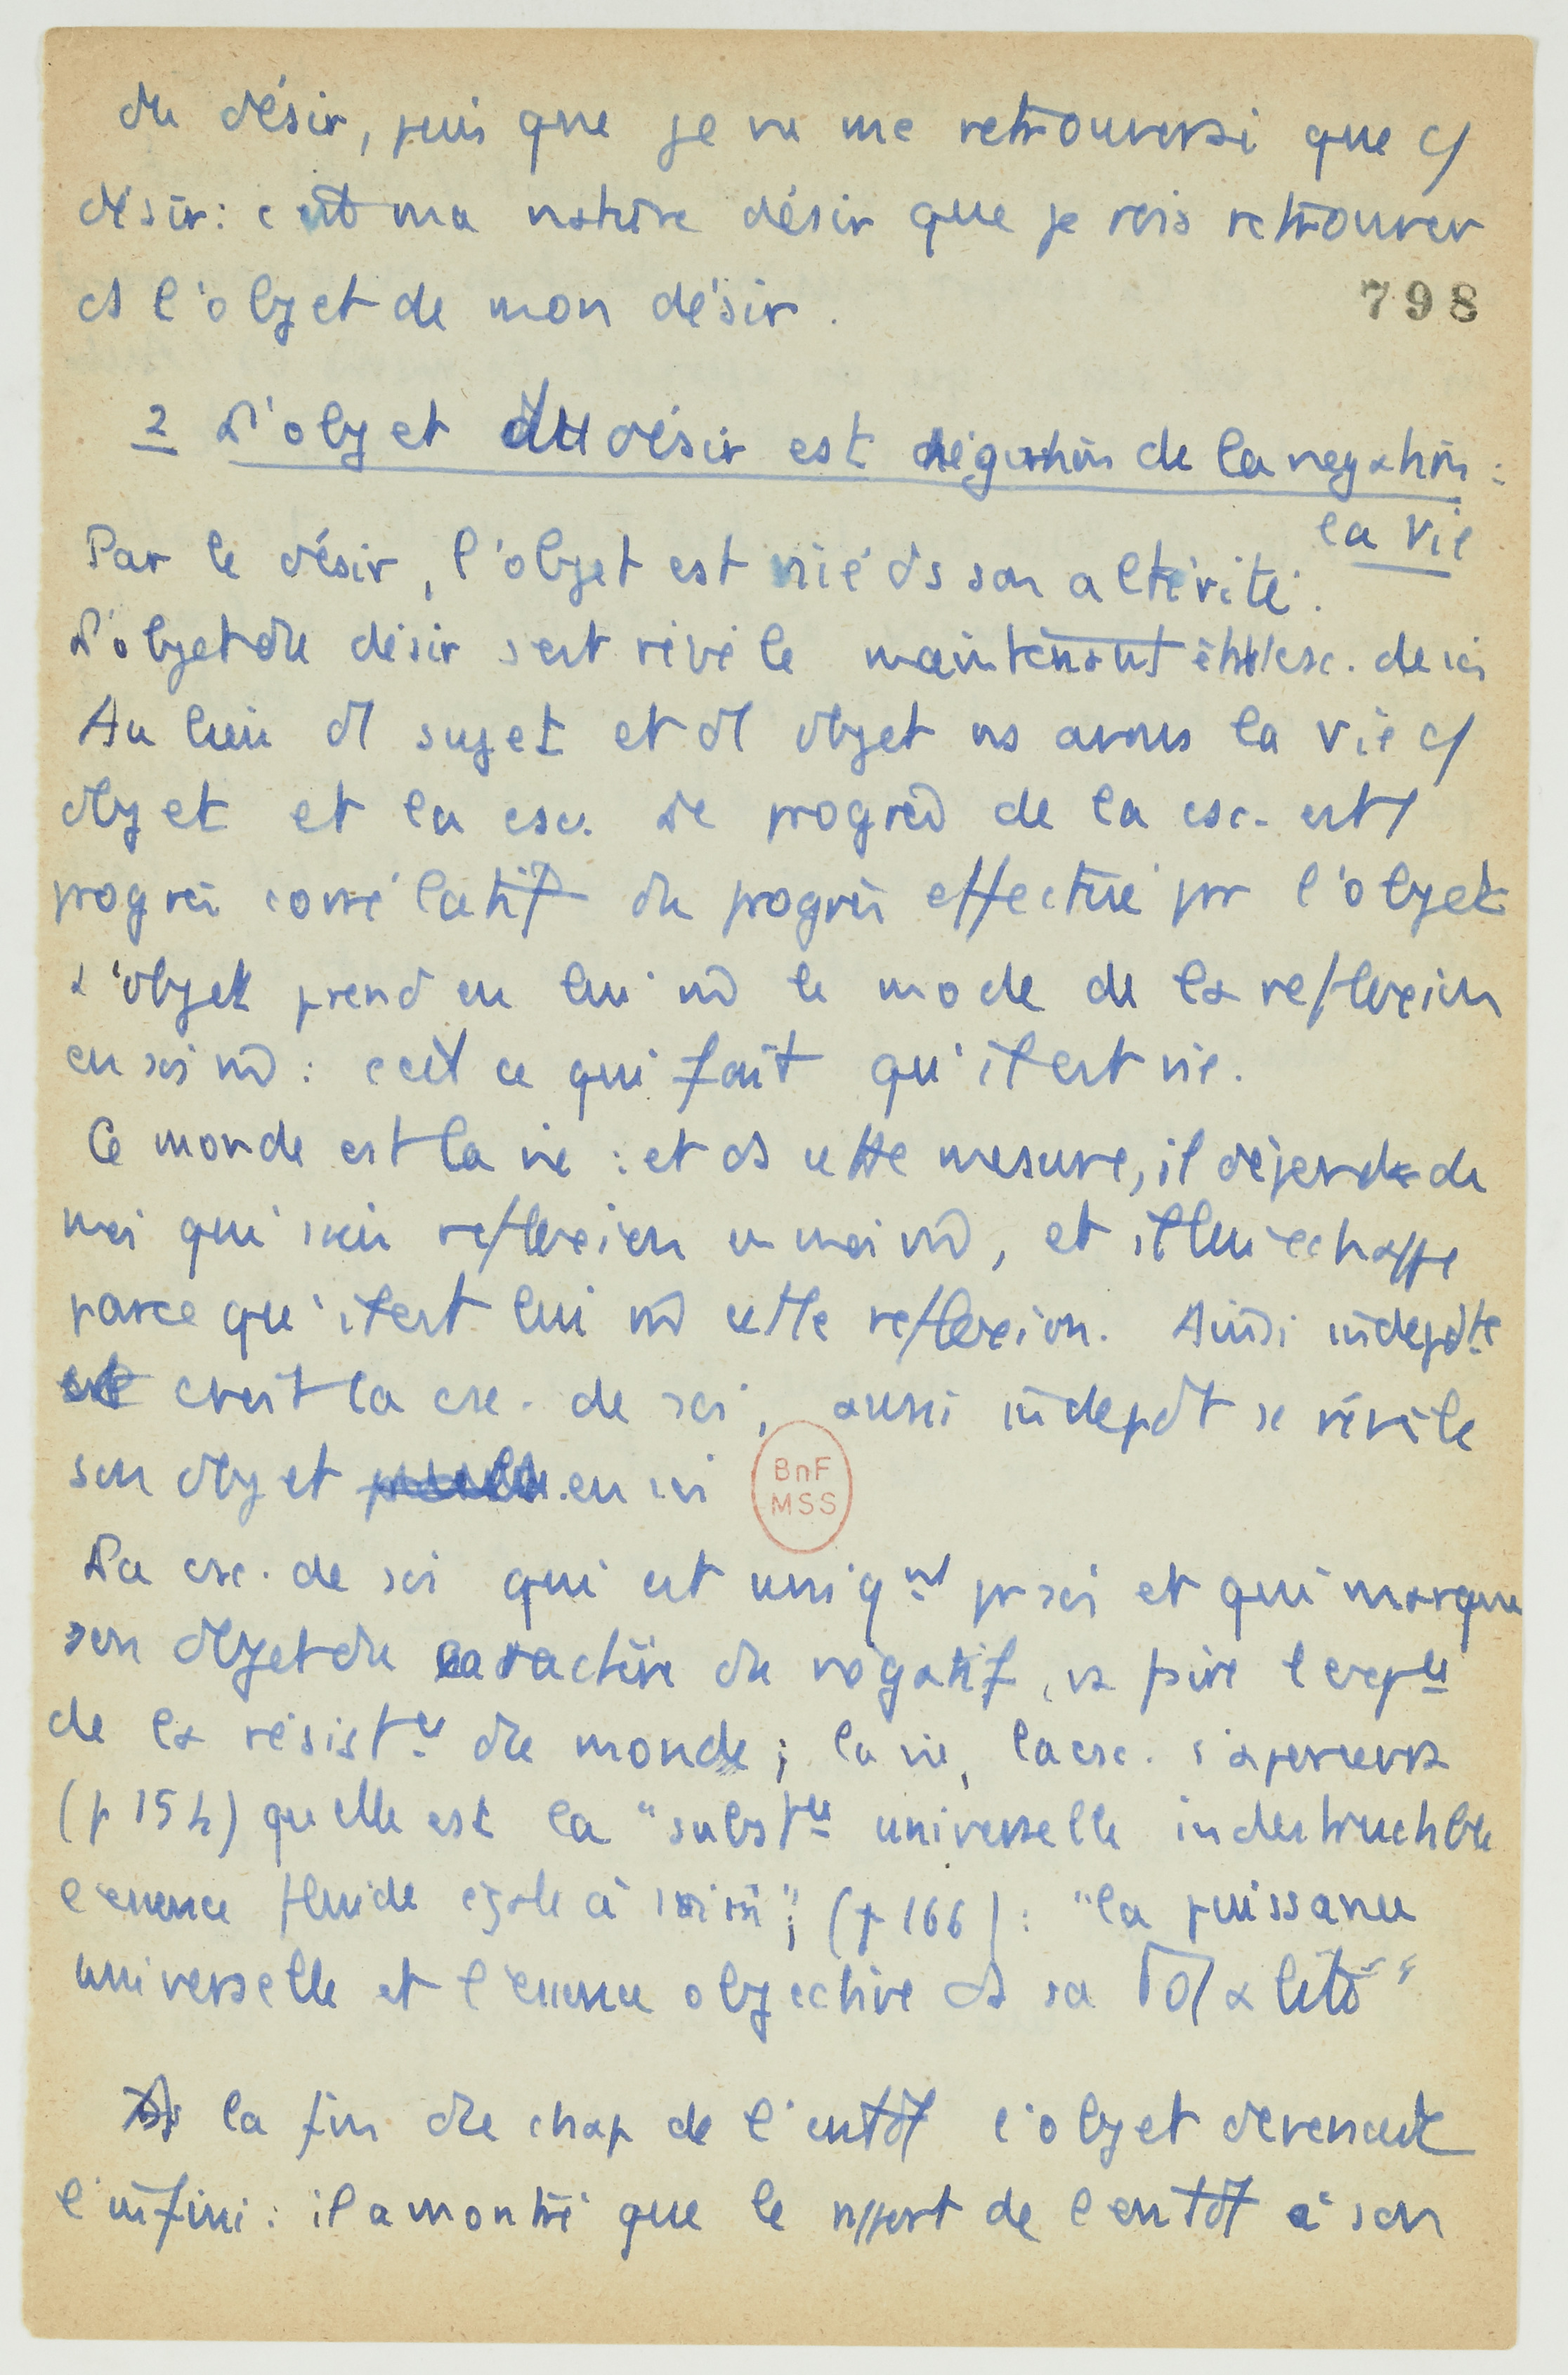 du désir, puis que je ne me retrouverai que c/
désir : c'est ma nature désir que je vais retrouver
ds l'objet de mon désir.
798
2 L'objet du désir est négation de la négation :
la vie
Par le désir, l'objet est nié ds son altérité.
L'objet du désir s'est révélé maintenant être csc. de soi
Au lieu d'1 sujet et d'1 objet ns avons la vie c/
objet et la csc. Le progrès de la csc. est 1
progrès corrélatif du progrès effectué par l'objet
L'objet prend en lui m̂ le mode de la reflexion
en soi m̂ : c'est ce qui fait qu'il est vie.
Ce monde est la vie : et ds cette mesure, il dépend de
moi qui suis reflexion en moi m̂, et il lui echappe
parce qu'il est lui m̂ cette reflexion. Ainsi indepdte
c'est la csc. de soi, aussi indepdt se révèle
son objet en soi
BnF
MSS
La csc. de soi qui est uniqnt pr soi et qui marque
son objet du caractère du négatif, va faire l'expce
de la résistce du monde ; la vie, la csc. s'apercevra
(p 154) qu'elle est la "substce universelle indestructible
l'essence fluide egale à soi m̂" ; (p 166) : "la puissance
universelle et l'essence objective ds sa totalité"
Ds la fin du chap de l'entdt l'objet devenait
l'infini : il a montré que le rapport de l'entdt à son